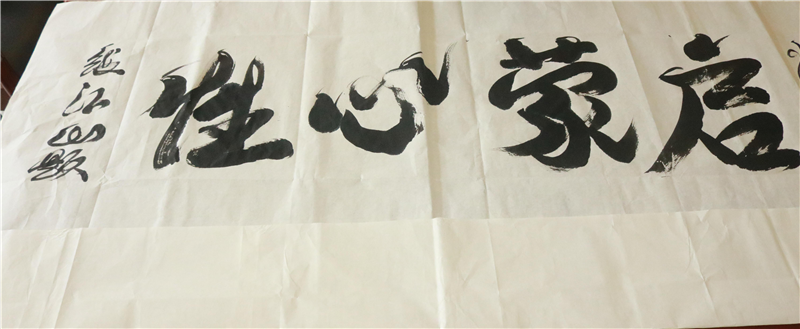 启蒙心性
江山题